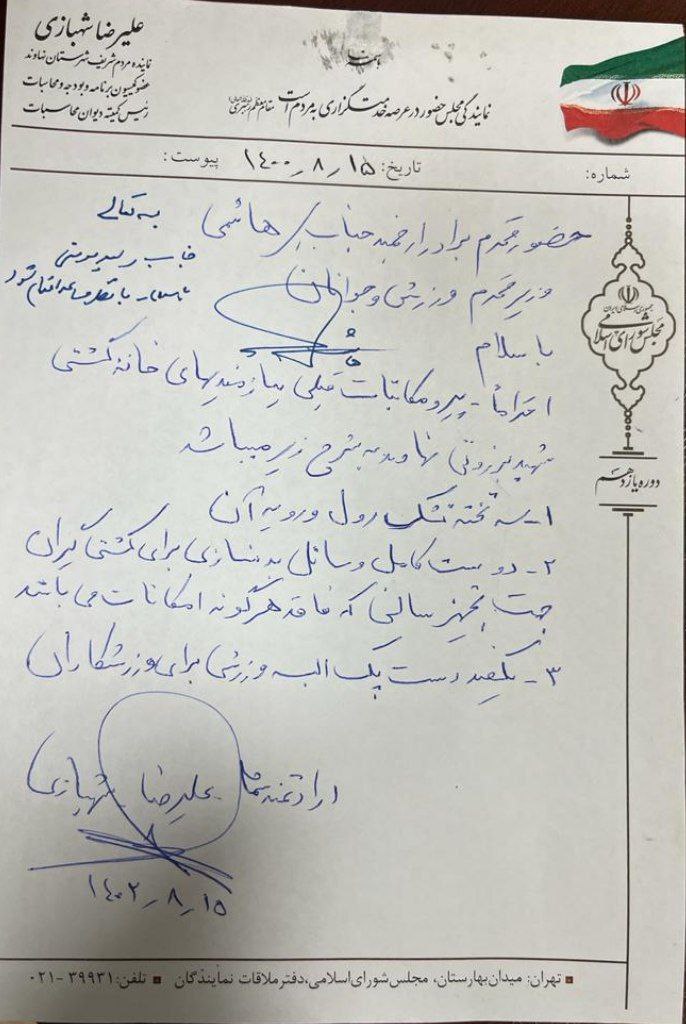 علیرضا شهبازی
نماینده مردم شریف شهرستان نهاوند
عضو کمیسیون برنامه و بودجه و محاسبات
رئیس کمیته دیوان محاسبات
نمایندگی مجلس حضور در عرصه خدمتگزاری به مردم است مقام معظم رهبری
شماره:
تاریخ: ۱۴۰۰٫۸٫۱۵
پیوست:
بسمه تعالی
جناب
حضور محترم برادر ارجمند جناب هاشمی
وزیر محترم ورزش و جوانان
با سلام
احتراماً - پیرو مکاتبات قبلی نیازمندیهای خانه کشتی
شهید نهاوند به شرح زیر میباشد
۱- سه تخته تشک رول و رویه آن
۲- دو ست کامل وسائل بدنسازی برای کشتی گیران
جهت تجهیز سالنی که فاقد هرگونه امکانات می باشد
۳- یکصد دست پک البسه ورزشی برای ورزشکاران
ارادتمند شما علیرضا شهبازی
۱۴۰۲٫۸٫۱۵
جمهوری اسلامی ایران
مجلس شورای اسلامی
دوره یازدهم
تهران: میدان بهارستان، مجلس شورای اسلامی، دفتر ملاقات نمایندگان ▪ تلفن: ۳۹۹۳۱-۰۲۱